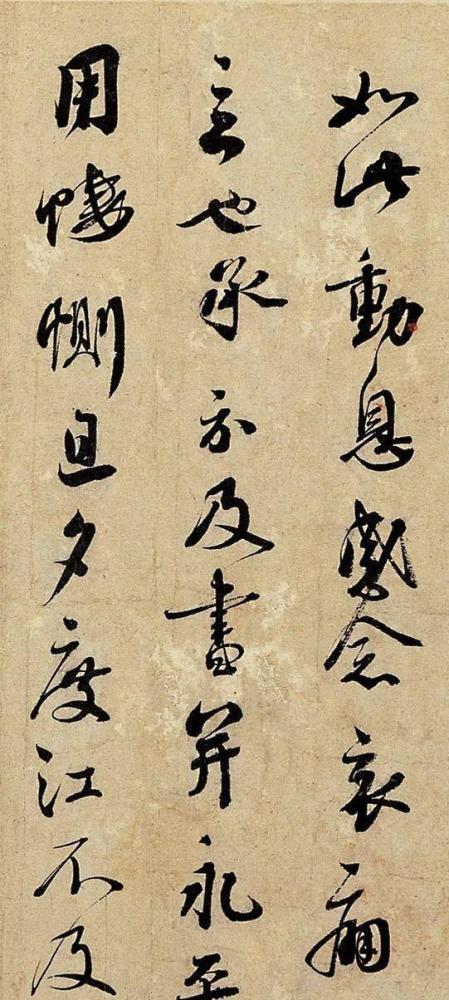 如此動息感念哀痛
言也承示及畫并永
用悽惻旦夕度江不及